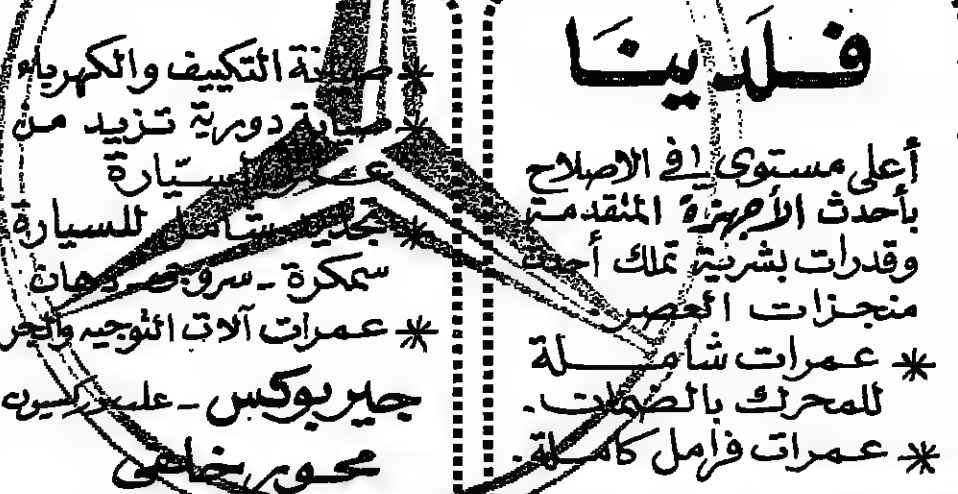 فلدينا
أعلى مستوى في الاصلاح
بأحدث الأجهزة المتقدمة
وقدرات بشرية تملك أحدث
منجزات العصر.
* عمرات شاملة
للمحرك بالضمان.
* عمرات فرامل كاملة.
* صيانة التكييف والكهرباء
* صيانة دورية تزيد من
عمر السيّارة
* تجديد شامل للسيارة
سمكرة - سروجية - دهان
* عمرات آلات التوجيه والجر
جيربوكس -
محور خلفى